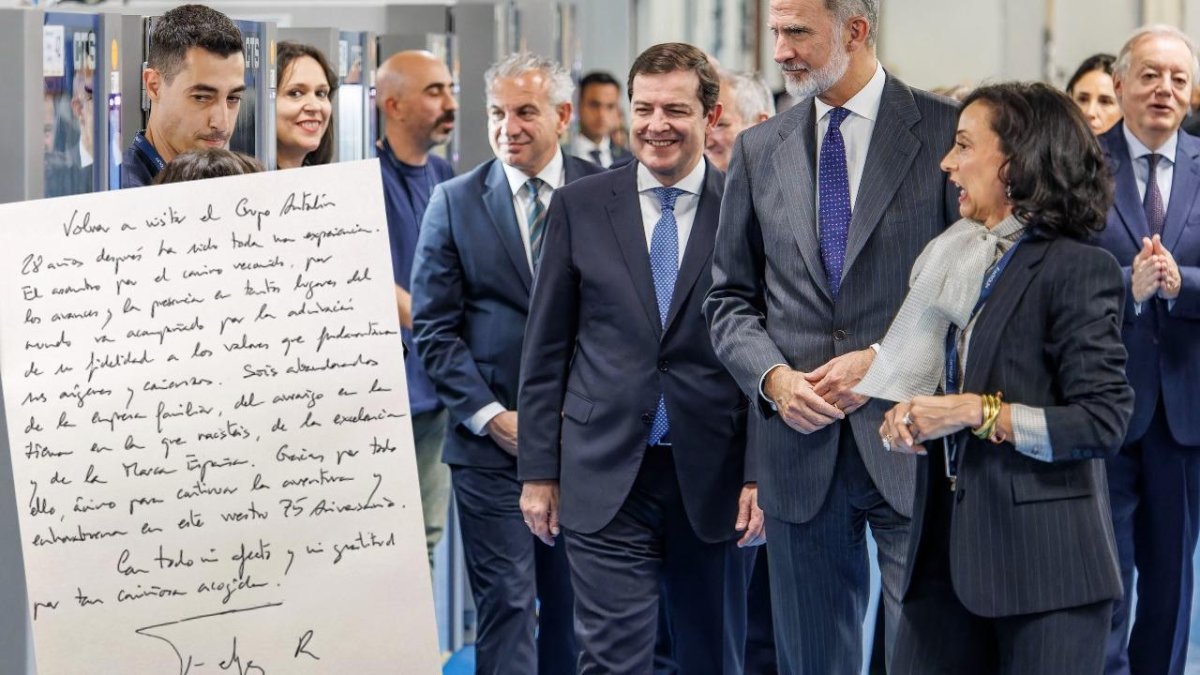 CTS
Volver a visitar el Grupo Antolín
28 años después ha sido toda una experiencia.
El asombro por el camino recorrido, por
los avances y la presencia en tantos lugares del
mundo va acompañado por la admiración
de su fidelidad a los valores que fundamentan
sus orígenes y comienzos. Sois abanderados
de la empresa familiar, del arraigo en la
tierra en la que nacisteis, de la excelencia
y de la Marca España. Gracias por todo
ello, ánimo para continuar la aventura y
enhorabuena en este vuestro 75 Aniversario.
Con todo mi afecto y mi gratitud
por tan cariñosa acogida.
Felipe R